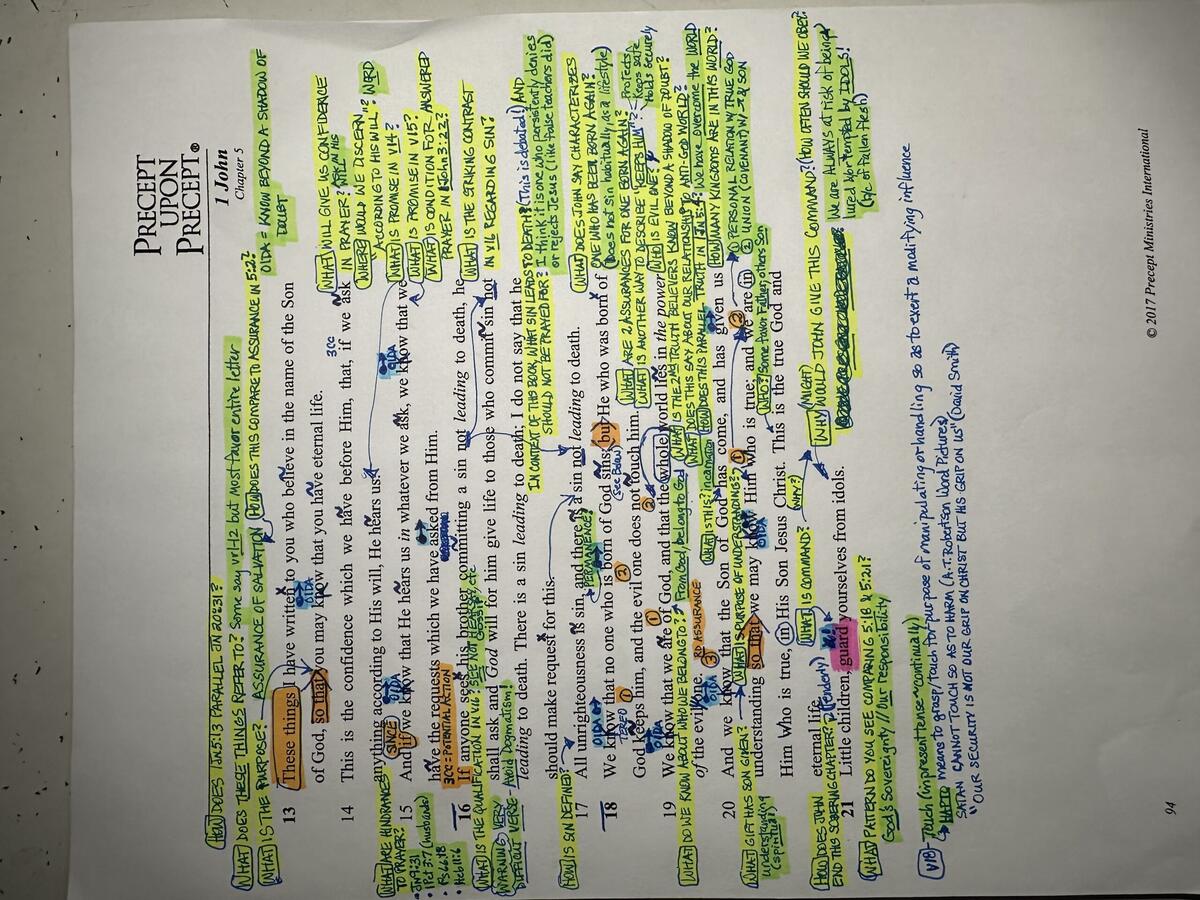 PRECEPT
UPON
PRECEPT®
1 John
Chapter 5
HOW DOES 1Jn5:13 PARALLEL JN 20:31?
WHAT DOES THESE THINGS REFER TO? Some say v1-12 but most favor entire letter
WHAT IS THE PURPOSE? ASSURANCE OF SALVATION HOW DOES THIS COMPARE TO ASSURANCE IN 5:2?
OIDA = KNOW BEYOND A SHADOW OF
DOUBT
13 These things I have written to you who believe in the name of the Son
OIDA
of God, so that you may know that you have eternal life.
3CC
14 This is the confidence which we have before Him, that, if we ask
WHAT WILL GIVE US CONFIDENCE
IN PRAYER? WILL IN HIS
anything according to His will, He hears us.
WHERE WOULD WE DISCERN
"ACCORDING TO HIS WILL"? WORD
WHAT ARE HINDRANCES
TO PRAYER?
• Jn 9:31
• 1Pe 3:7 (husbands)
• Ps 66:18
• Heb 11:6
SINCE OIDA OIDA
15 And if we know that He hears us in whatever we ask, we know that we
WHAT IS PROMISE IN V14?
WHAT IS PROMISE IN V15?
have the requests which we have asked from Him.
WHAT IS CONDITION FOR ANSWERED
PRAYER IN 1John 3:22?
3CC = POTENTIAL ACTION
16 If anyone sees his brother committing a sin not leading to death, he
WHAT IS THE STRIKING CONTRAST
IN V16 REGARDING SIN?
WHAT IS THE QUALIFICATION IN V16? SEE NOT HEARSAY, etc
GOSSIP
shall ask and God will for him give life to those who commit sin not
WARNING VERY
DIFFICULT VERSE - Avoid Dogmatism!
leading to death. There is a sin leading to death; I do not say that he
IN CONTEXT OF THIS BOOK WHAT SIN LEADS TO DEATH? (This is debated!) AND
SHOULD NOT BE PRAYED FOR? I think it is one who persistently denies
or rejects Jesus (like false teachers did)
should make request for this.
HOW IS SIN DEFINED?
17 All unrighteousness is sin, and there is a sin not leading to death.
WHAT DOES JOHN SAY CHARACTERIZES
ONE WHO HAS BEEN BORN AGAIN?
(Does not sin habitually, as a lifestyle)
OIDA PERMANENCE?
18 We know that no one who is born of God sins; but He who was born of
(See Below)
WHAT ARE 2 ASSURANCES FOR ONE BORN AGAIN?
WHAT IS ANOTHER WAY TO DESCRIBE "KEEPS HIM"? Protects
Keeps safe
Holds securely
TEREO ① ②
God keeps him, and the evil one does not touch him.
WHO IS EVIL ONE?
OIDA ① ②
19 We know that we are of God, and that the whole world lies in the power
WHAT DO WE KNOW ABOUT WHO WE BELONG TO? From God, belong to God
WHAT IS THE 2ND TRUTH BELIEVERS KNOW BEYOND A SHADOW OF DOUBT?
WHAT DOES THIS SAY ABOUT OUR RELATIONSHIP TO ANTI-GOD WORLD?
of the evil one. 3 RD ASSURANCE
WHAT IS THIS? incarnation HOW DOES THIS PARALLEL TRUTH IN 1Jn 5:4? We have overcome the WORLD
HOW MANY KINGDOMS ARE IN THIS WORLD?
OIDA
20 And we know that the Son of God has come, and has given us
WHAT GIFT HAS SON GIVEN? WHAT IS PURPOSE OF UNDERSTANDING?
Understanding
(spiritual)
① PERSONAL RELATION W/TRUE GOD
② UNION (COVENANT) W/ & SON
OIDA ① ②
understanding so that we may know Him Who is true; and we are in
Him Who is true, in His Son Jesus Christ. This is the true God and
WHO? Some favor Father, others Son
eternal life.
HOW DOES JOHN
END THIS SOBERING CHAPTER? (Tenderly)
WHAT IS COMMAND? WHY?
(MIGHT)
WHY WOULD JOHN GIVE THIS COMMAND? (HOW OFTEN SHOULD WE OBEY?
We are ALWAYS at risk of being
lured into tempted by IDOLS!
(Aye at fallen flesh)
21 Little children, guard yourselves from idols.
WHAT PATTERN DO YOU SEE COMPARING 5:18 & 5:21?
God's Sovereignty // Our responsibility
V18 - Touch (in present tense ~ continually)
HAPTO means to grasp, touch, for purpose of manipulating or handling so as to exert a modifying influence
SATAN CANNOT TOUCH SO AS TO HARM (A.T. Robertson Word Pictures)
"OUR SECURITY IS NOT OUR GRIP ON CHRIST BUT HIS GRIP ON US" (David Smith)
94
© 2017 Precept Ministries International